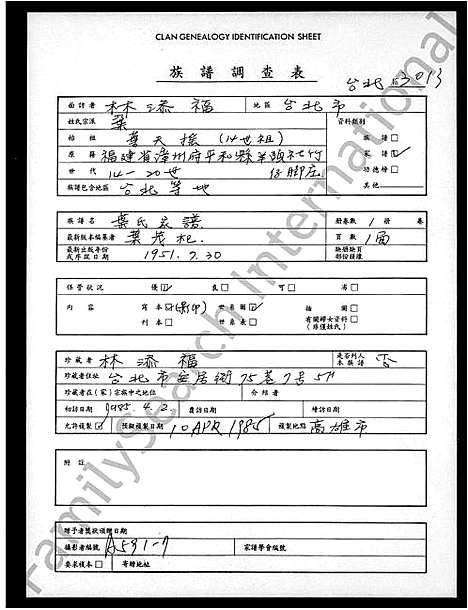 CLAN GENEALOGY IDENTIFICATION SHEET
族譜調查表
台北 53013
面訪者 林添福 地區 台北市
姓氏宗派 葉 資料類別
始祖 葉天 (14世祖) 族譜□
原籍 福建省漳州府平和縣 家譜☑
世代 14-20世 功德榜□
族譜包含地區 台北等地 其他
族譜名 葉氏家譜 冊卷數 1冊 卷
最新版本編纂者 葉茂杞. 頁數 1面
最新出版年份或序說日期 1951.7.30 缺冊缺頁部份張線
保管狀況 優☑ 良□ 可□ 劣□
內容 寫本☑(影印) 世系圖☑ 插圖□
刊本□ 世系表□ 有關婦女資料(非僅姓氏)□
珍藏者 林添福 是否列入本族譜 否
珍藏者住址 台北市安居街75巷7号5F
珍藏者在(家)宗族中之地位 介紹者
初訪日期 1985.4.2. 複訪日期 續訪日期
允許複製☑ 預約複製日期 10 APR 1985 複製地點 高雄市
附註
贈予者獎狀頒贈日期
攝影者編號 A531-7 家譜學會編號
要求複本□ 寄贈地址
FamilySearch International